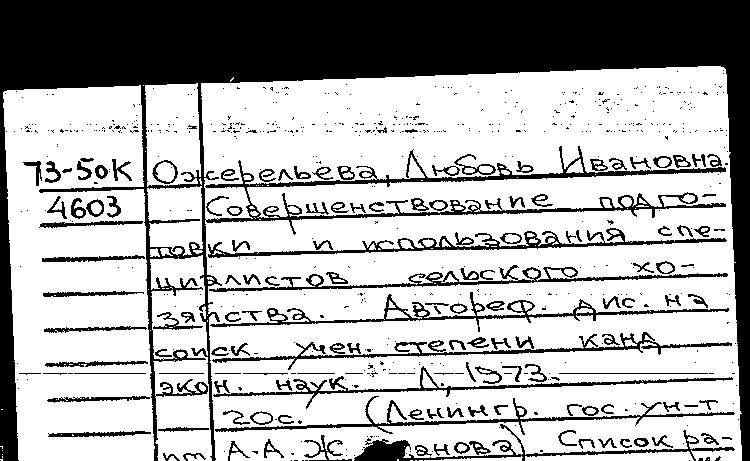 73-50К Ожерельева, Любовь Ивановна.
4603 Совершенствование подго-
товки и использования спе-
циалистов сельского хо-
зяйства. Автореф. дис. на
соиск. учен. степени канд
экон. наук. Л., 1973.
20с. (Ленингр. гос. ун-т
им. А.А. Ж анова). Список ра-